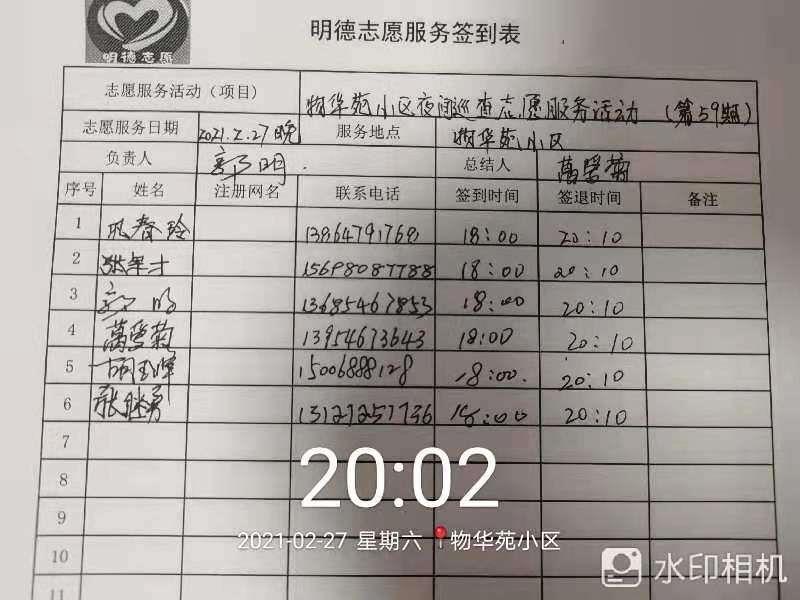 明德志愿
明德志愿服务签到表
志愿服务活动（项目） 物华苑小区夜间巡查志愿服务活动（第59期）
志愿服务日期 2021.2.27晚 服务地点 物华苑小区
负责人 郭明 总结人
序号 姓名 注册网名 联系电话 签到时间 签退时间 备注
1 春玲 13864791768 18:00 20:10
2 15698087788 18:00 20:10
3 郭明 13685467853 18:00 20:10
4 13954673643 18:00 20:10
5 胡玉辉 15006888128 18:00 20:10
6 张继勇 13127251736 18:00 20:10
7
8
9
10
11
20:02
2021-02-27 星期六 物华苑小区
水印相机